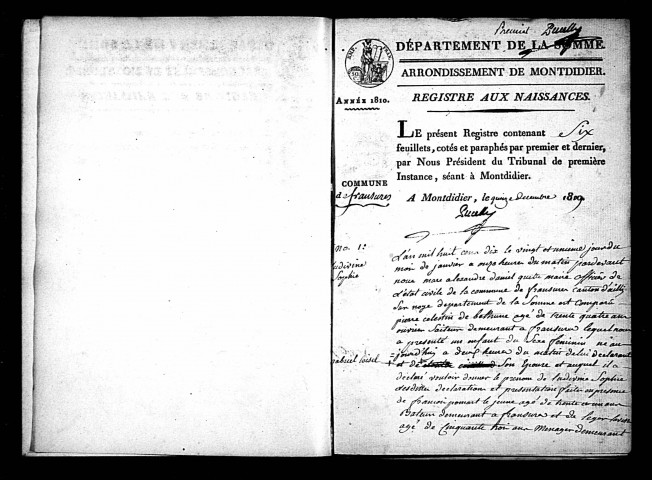 Premier
DÉPARTEMENT DE LA SOMME.
ARRONDISSEMENT DE MONTDIDIER.
ANNÉE 1810.
REGISTRE AUX NAISSANCES.
LE présent Registre contenant Six
feuillets, cotés et paraphés par premier et dernier,
par Nous Président du Tribunal de première
Instance, séant à Montdidier.
COMMUNE
de fransures
A Montdidier, le quinze Decembre 1809
no. 1er
Ludivine
Sophie
L'an mil huit cent dix le vingt et unieme jour du
mois de janvier a onze heures du matin pardevant
nous maire alexandre daniel maire officier de
l'état civile de la commune de fransures canton d'ailli
Sur noye departement de la Somme est comparu
pierre celestin de bethune agé de trente quatre ans
ouvrier demeurant a fransures lequel nous
a presenté un enfant du Sexe feminin né au
jourd'hui a deux heures du matin de lui declarant
et de Son Epouse et auquel il a
declaré vouloir donner le prenom de ludivine Sophie
declaration et presentation faite en presence
de francois le jeune agé de trente cinq ans
demeurant a fransures et de
agé de Cinquante trois ans Menager demeurant